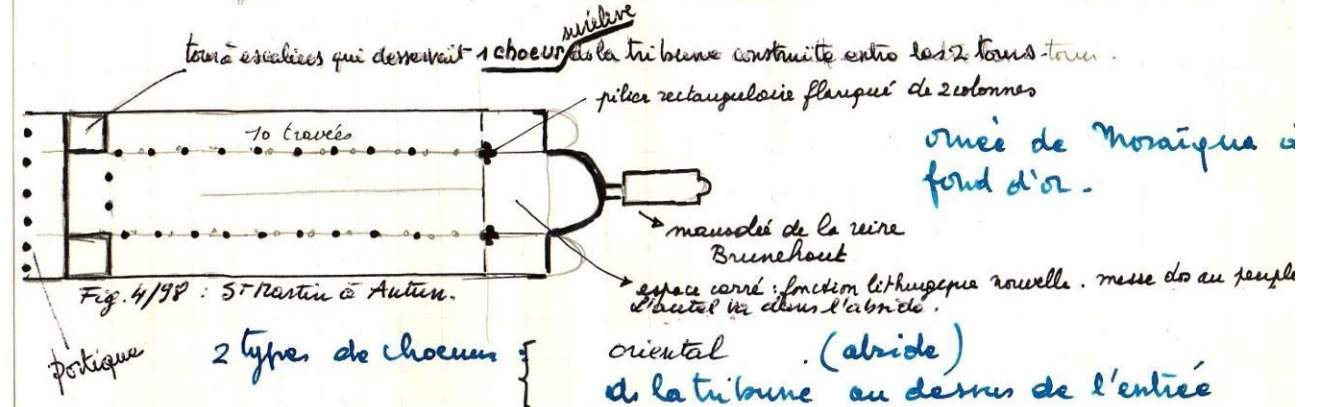 surélevé
tour à escaliers qui desservait 1 choeur ds la tribune construite entre les 2 tours-tour.
pilier rectangulaire flanqué de 2 colonnes
10 travées
ornée de Mosaïque à
fond d'or.
mausolée de la reine
Brunehout
Fig. 4/98 : St Martin à Autun.
espace carré : fonction lithurgique nouvelle. messe dos au peuple
L'autel va dans l'abside.
portique
2 types de choeurs : oriental . (abside)
ds la tribune au dessus de l'entrée